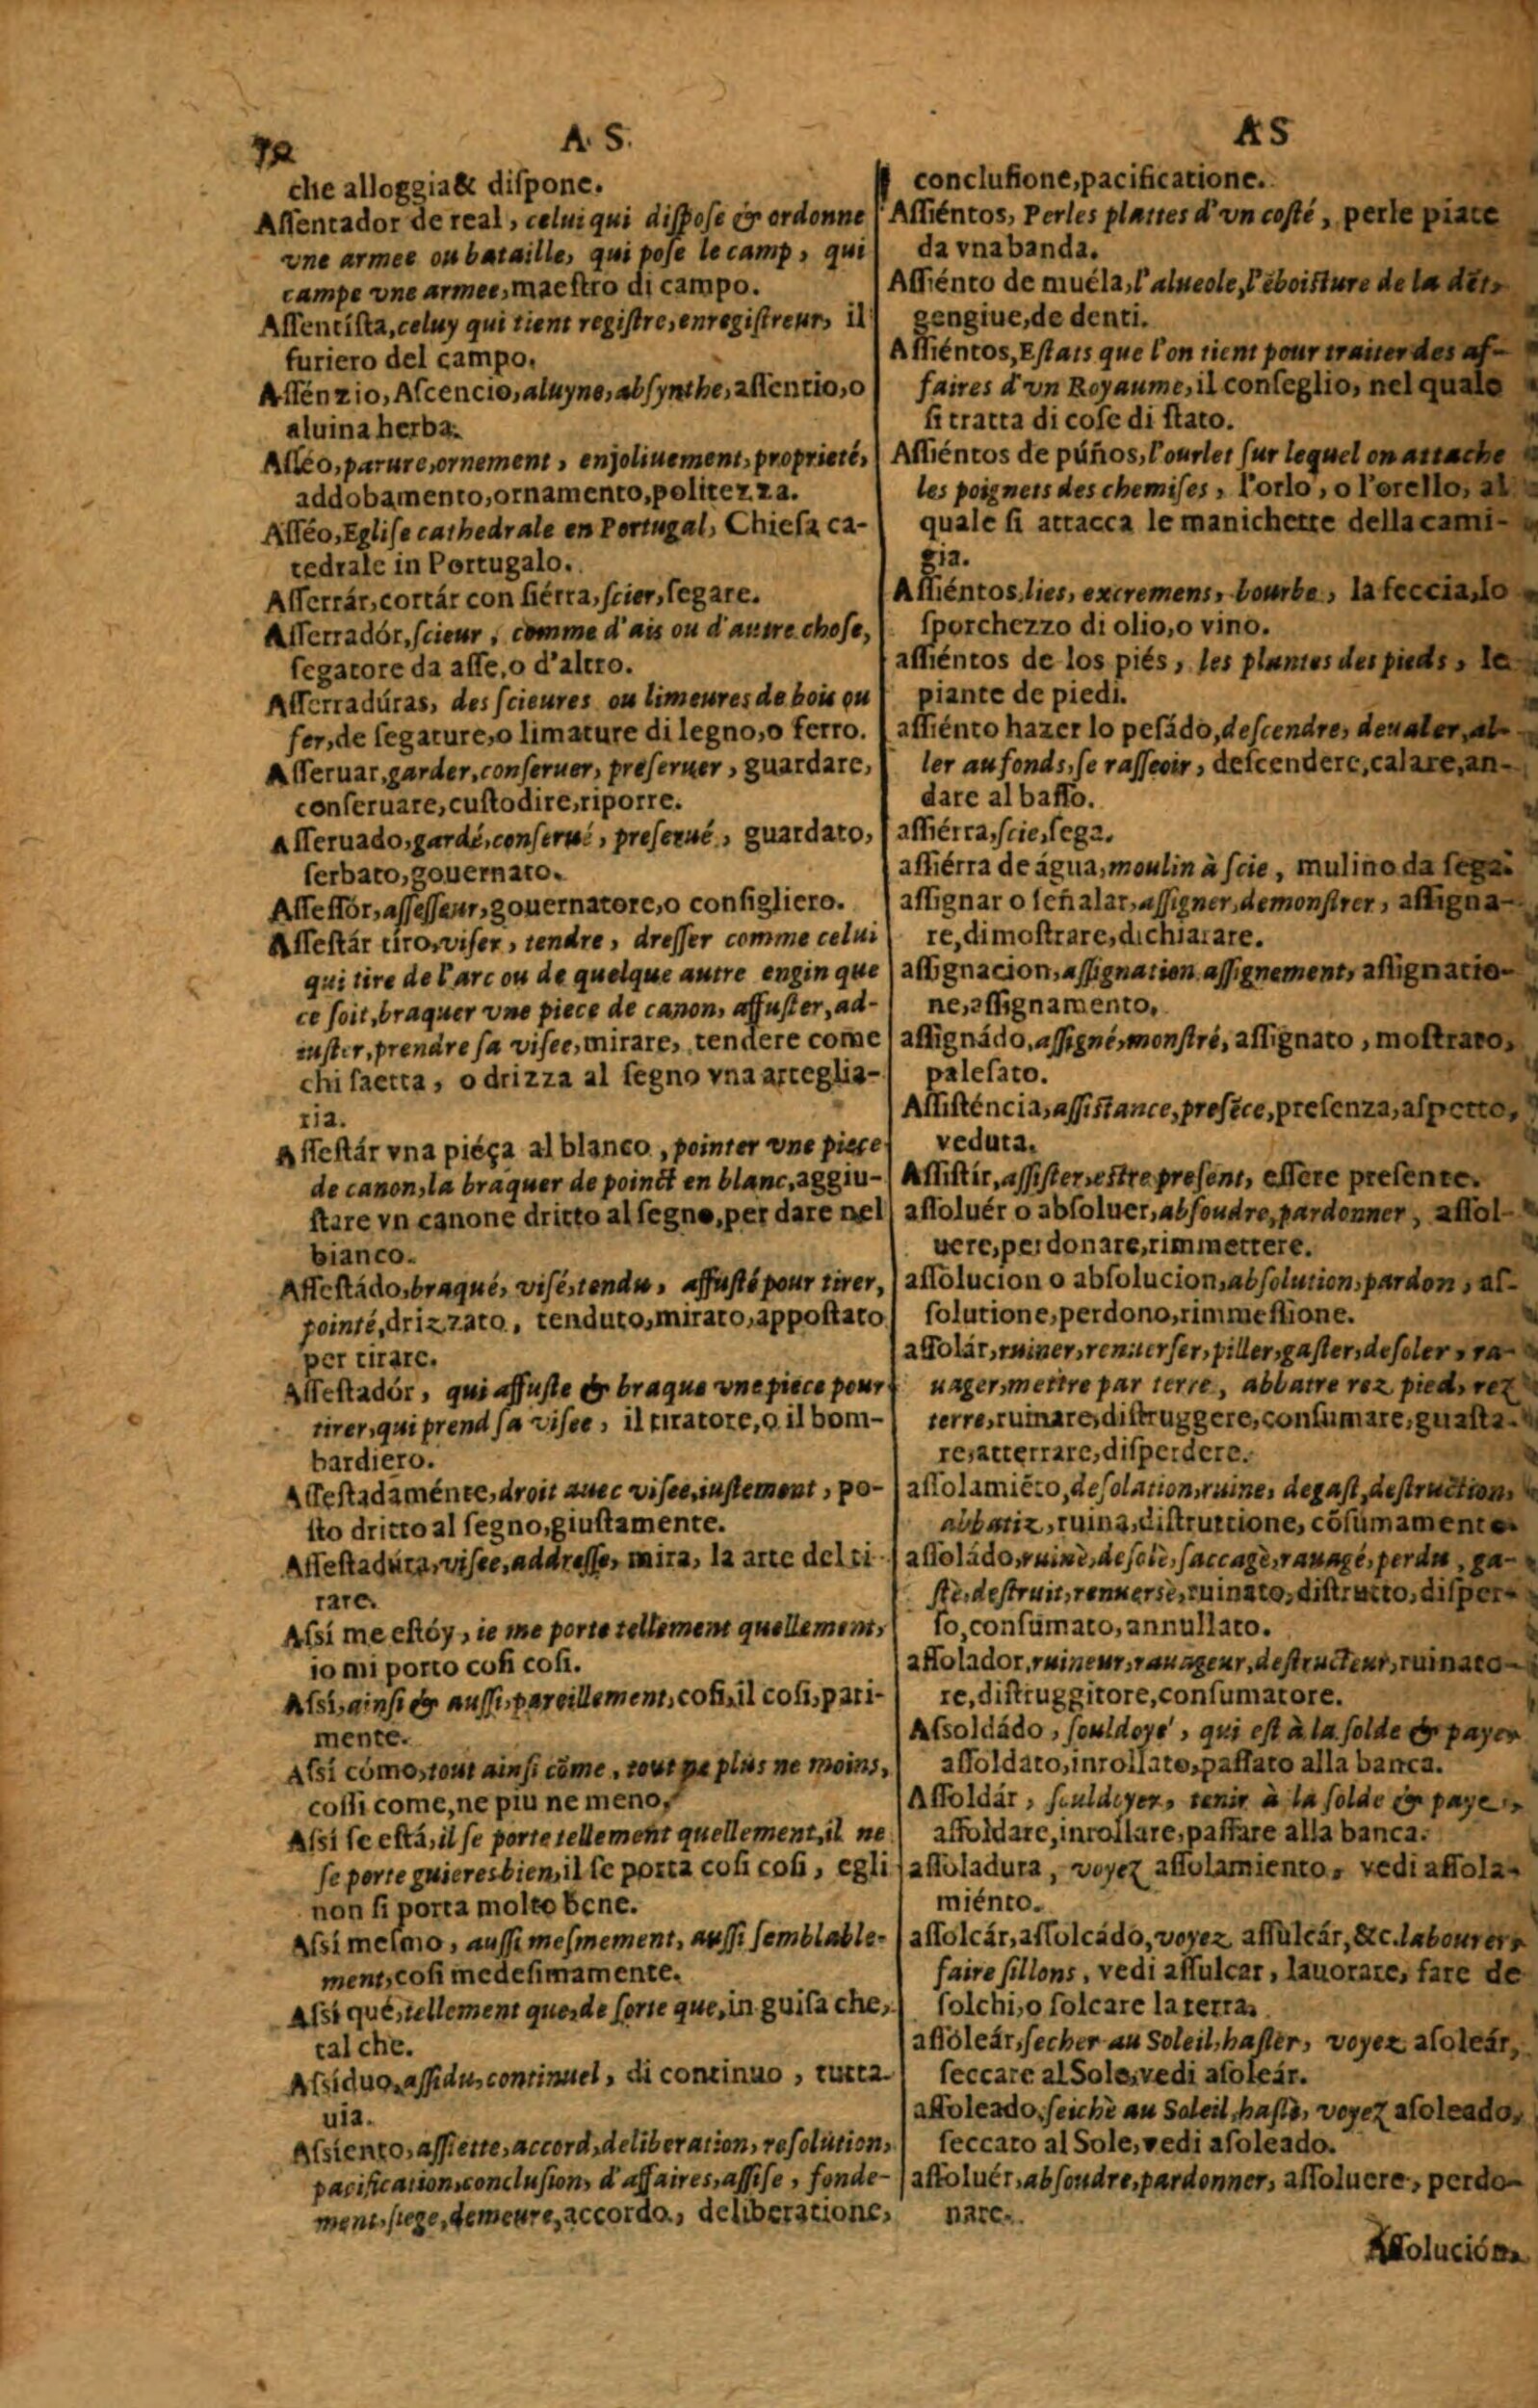 72 A. S.
che alloggia& diſpone.
Aſſentador de real, celui qui diſpoſe & ordonne
vne armee ou bataille, qui poſe le camp, qui
campe vne armee, maeſtro di campo.
Aſſentíſta, celuy qui tient regiſtre, enregiſtreur, il
furiero del campo.
Aſſénzio, Aſcencio, aluyne, abſynthe, aſſentio, o
aluina herba.
Aſſéo, parure, ornement, enjoliuement, proprieté,
addobamento, ornamento, politezza.
Aſſéo, Egliſe cathedrale en Portugal, Chieſa ca-
tedrale in Portugalo.
Aſſerrár, cortár con ſiérra, ſcier, ſegare.
Aſſerradór, ſcieur, comme d'ais ou d'autre choſe,
ſegatore da aſſe, o d'altro.
Aſſerradúras, des ſcieures ou limeures de bois ou
fer, de ſegature, o limature di legno, o ferro.
Aſſeruar, garder, conſeruer, preſeruer, guardare,
conſeruare, cuſtodire, riporre.
Aſſeruado, gardé, conſerué, preſerué, guardato,
ſerbato, gouernato.
Aſſeſſór, aſſeſſeur, gouernatore, o conſigliero.
Aſſeſtár tiro, viſer, tendre, dreſſer comme celui
qui tire de l'arc ou de quelque autre engin que
ce ſoit, braquer vne piece de canon, affuſter, ad-
iuſter, prendre ſa viſee, mirare, tendere come
chi ſaetta, o drizza al ſegno vna arteglia-
ria.
Aſſeſtár vna piéça al blanco, pointer vne piece
de canon, la braquer de poinct en blanc, aggiu-
ſtare vn canone dritto al ſegno, per dare nel
bianco.
Aſſeſtádo, braqué, viſé, tendu, affuſté pour tirer,
pointé, drizzato, tenduto, mirato, appoſtato
per tirare.
Aſſeſtadór, qui affuſte & braque vne piece pour
tirer, qui prend ſa viſee, il tiratore, o il bom-
bardiero.
Aſſeſtadaménte, droit auec viſee, iuſtement, po-
ſto dritto al ſegno, giuſtamente.
Aſſeſtadúra, viſee, addreſſe, mira, la arte del ti-
rare.
Aſsí me eſtóy, ie me porte tellement quellement,
io mi porto coſi coſi.
Aſsí, ainſi & auſſi, pareillement, coſi, il coſi, pari-
mente.
Aſsí cómo, tout ainſi cõme, tout ne plus ne moins,
coſſi come, ne piu ne meno.
Aſsí ſe eſtá, il ſe porte tellement quellement, il ne
ſe porte guieres bien, il ſe porta coſi coſi, egli
non ſi porta molto bene.
Aſsí meſmo, auſſi meſmement, auſſi ſemblable-
ment, coſi medeſimamente.
Aſsí qué, tellement que, de ſorte que, in guiſa che,
tal che.
Aſsíduo, aſſidu, continuel, di continuo, tutta
uia.
Aſsiento, aſſiette, accord, deliberation, reſolution,
pacification, concluſion, d'affaires, aſſiſe, fonde-
ment, ſiege, demeure, accordo, deliberatione,
AS
concluſione, pacificatione.
Aſſiéntos, Perles plattes d'vn coſté, perle piate
da vna banda.
Aſſiénto de muéla, l'alueole, l'ẽboiſture de la dẽt,
gengiue, de denti.
Aſſiéntos, Eſtats que l'on tient pour traiter des af-
faires d'vn Royaume, il conſeglio, nel quale
ſi tratta di coſe di ſtato.
Aſſiéntos de púños, l'ourlet ſur lequel on attache
les poignets des chemiſes, l'orlo, o l'orello, al
quale ſi attacca le manichette della cami-
gia.
Aſſiéntos, lies, excremens, bourbe, la feccia, lo
ſporchezzo di olio, o vino.
aſſiéntos de los piés, les plantes des pieds, le
piante de piedi.
aſſiénto hazer lo peſádo, deſcendre, deualer, al-
ler au fonds, ſe raſſeoir, deſcendere, calare, an-
dare al baſſo.
aſſiérra, ſcie, ſega.
aſſiérra de água, moulin à ſcie, mulino da ſega.
aſſignar o ſeñalar, aſſigner, demonſtrer, aſſigna-
re, dimoſtrare, dichiarare.
aſſignacion, aſſignation, aſſignement, aſſignatio-
ne, aſſignamento.
aſſignádo, aſſigné, monſtré, aſſignato, moſtrato,
paleſato.
Aſſiſténcia, aſſiſtance, preſẽce, preſenza, aſpetto,
veduta.
Aſſiſtír, aſſiſter, eſtre preſent, eſſere preſente.
aſſoluér o abſoluer, abſoudre, pardonner, aſſol-
uere, perdonare, rimmettere.
aſſolucion o abſolucion, abſolution, pardon, aſ-
ſolutione, perdono, rimmeſſione.
aſſolár, ruiner, renuerſer, piller, gaſter, deſoler, ra-
uager, mettre par terre, abbatre rez pied, rez
terre, ruinare, diſtruggere, conſumare, guaſta-
re, atterrare, diſperdere.
aſſolamiẽto, deſolation, ruine, degaſt, deſtruction,
abbatiz, ruina, diſtruttione, cõſumamento.
aſſoládo, ruinè, deſolè, ſaccagè, rauagé, perdu, ga-
ſtè, deſtruit, renuersè, ruinato, diſtrutto, diſper-
ſo, conſumato, annullato.
aſſolador, ruineur, rauageur, deſtructeur, ruinato-
re, diſtruggitore, conſumatore.
Aſsoldádo, ſouldoyé, qui eſt à la ſolde & paye,
aſſoldato, inrollato, paſſato alla banca.
Aſſoldár, ſouldoyer, tenir à la ſolde & paye,
aſſoldare, inrollare, paſſare alla banca.
aſſoladura, voyez aſſolamiento, vedi aſſola-
miénto.
aſſolcár, aſſolcádo, voyez aſſulcár, &c. labourer,
faire ſillons, vedi aſſulcar, lauorare, fare de
ſolchi, o ſolcare la terra.
aſſoleár, ſecher au Soleil, haſler, voyez aſoleár,
ſeccare al Sole, vedi aſoleár.
aſſoleado, ſeichè au Soleil, haſlè, voyez aſoleado,
ſeccato al Sole, vedi aſoleado.
aſſoluér, abſoudre, pardonner, aſſoluere, perdo-
nare.
Aſſolución.